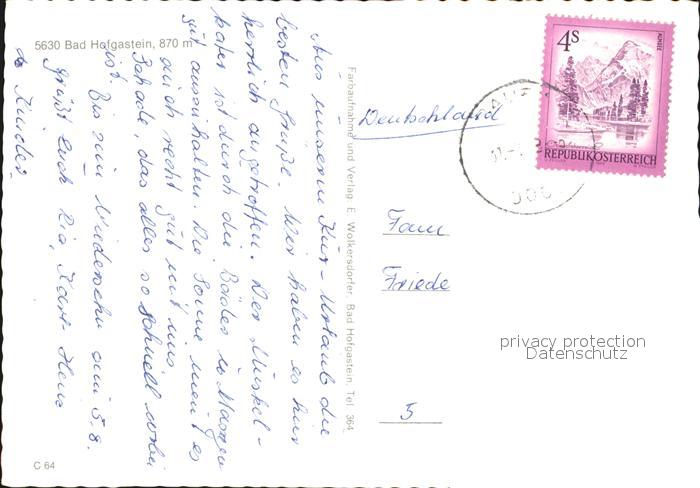 5630 Bad Hofgastein, 870 m
Aus unserem Kur-Urlaub die
besten Grüße. Wir haben es hier
herrlich angetroffen. Der Muskel-
kater ist durch die Bäder u. Massagen
gut auszuhalten. Die Sonne meint es
auch recht gut mit uns.
Schade, das alles so schnell vorbei
ist.
Bis zum Wiedersehn am 5.8.
grüßt Euch Ria, Karl-Heinz
u. Kinder
C 64
Farbaufnahme und Verlag E. Wolkersdorfer, Bad Hofgastein, Tel. 364
Deutschland
4 S
ALMSEE
REPUBLIK ÖSTERREICH
Fam
Friede
5
privacy protection
Datenschutz